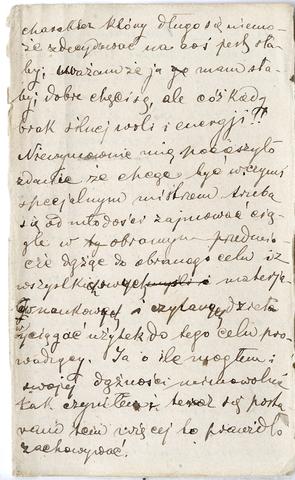 charakter który długo się niemo-
że zdecydować na coś jest sła-
by; uważam że ja go mam sła-
by; dobre chęci są, ale cóż kiedy
brak silnej woli i energji!!
Niewymownie mię pocieszyło
zdanie że chcąc być w czymś
specjelnym mistrzem trzeba
się od młodości zajmować cią-
gle w tym obranym przedmio-
cie dążąc do obranego celu i z
wszystkich materja-
naukowych i czytanych dzieła
wyciągać użytek do tego celu pro-
wadzący. Ja o ile mogłem i
swojej dążności mimowolnie
tak czyniłem i teraz się posta
ram tem więcej to prawidło
zachowywać.